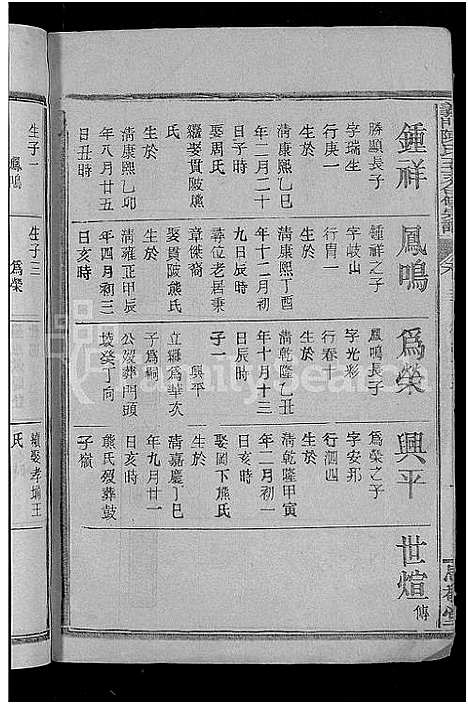 鍾祥
勝顯長子
字瑞生
行庚一
生於
清康熙乙丑
年二月二十
日子時
娶周氏
繼娶貫陂熊
氏
生於
清康熙乙卯
年八月廿五
日丑時
鳳鳴
鍾祥之子
字岐山
行胄一
生於
清康熙丁酉
年十二月初
九日辰時
尋位老居秉
章傑裔
娶貫陂熊氏
生於
清雍正甲辰
年四月初三
日亥時
為榮
鳳鳴長子
字光彩
行春十
生於
清乾隆乙丑
年十月十三
日辰時
子一
興平
立繼為華次
子為嗣
公歿葬門頭
塝癸丁向
興平
為榮之子
字安邦
行泗四
生於
清乾隆甲寅
年二月初一
日亥時
娶岡下熊氏
生於
清嘉慶丁巳
年九月廿一
日亥時
熊氏歿葬鼓
子嶺
世煊傳
生子一
鳳鳴
生子三
為榮
續娶孝塘王
氏